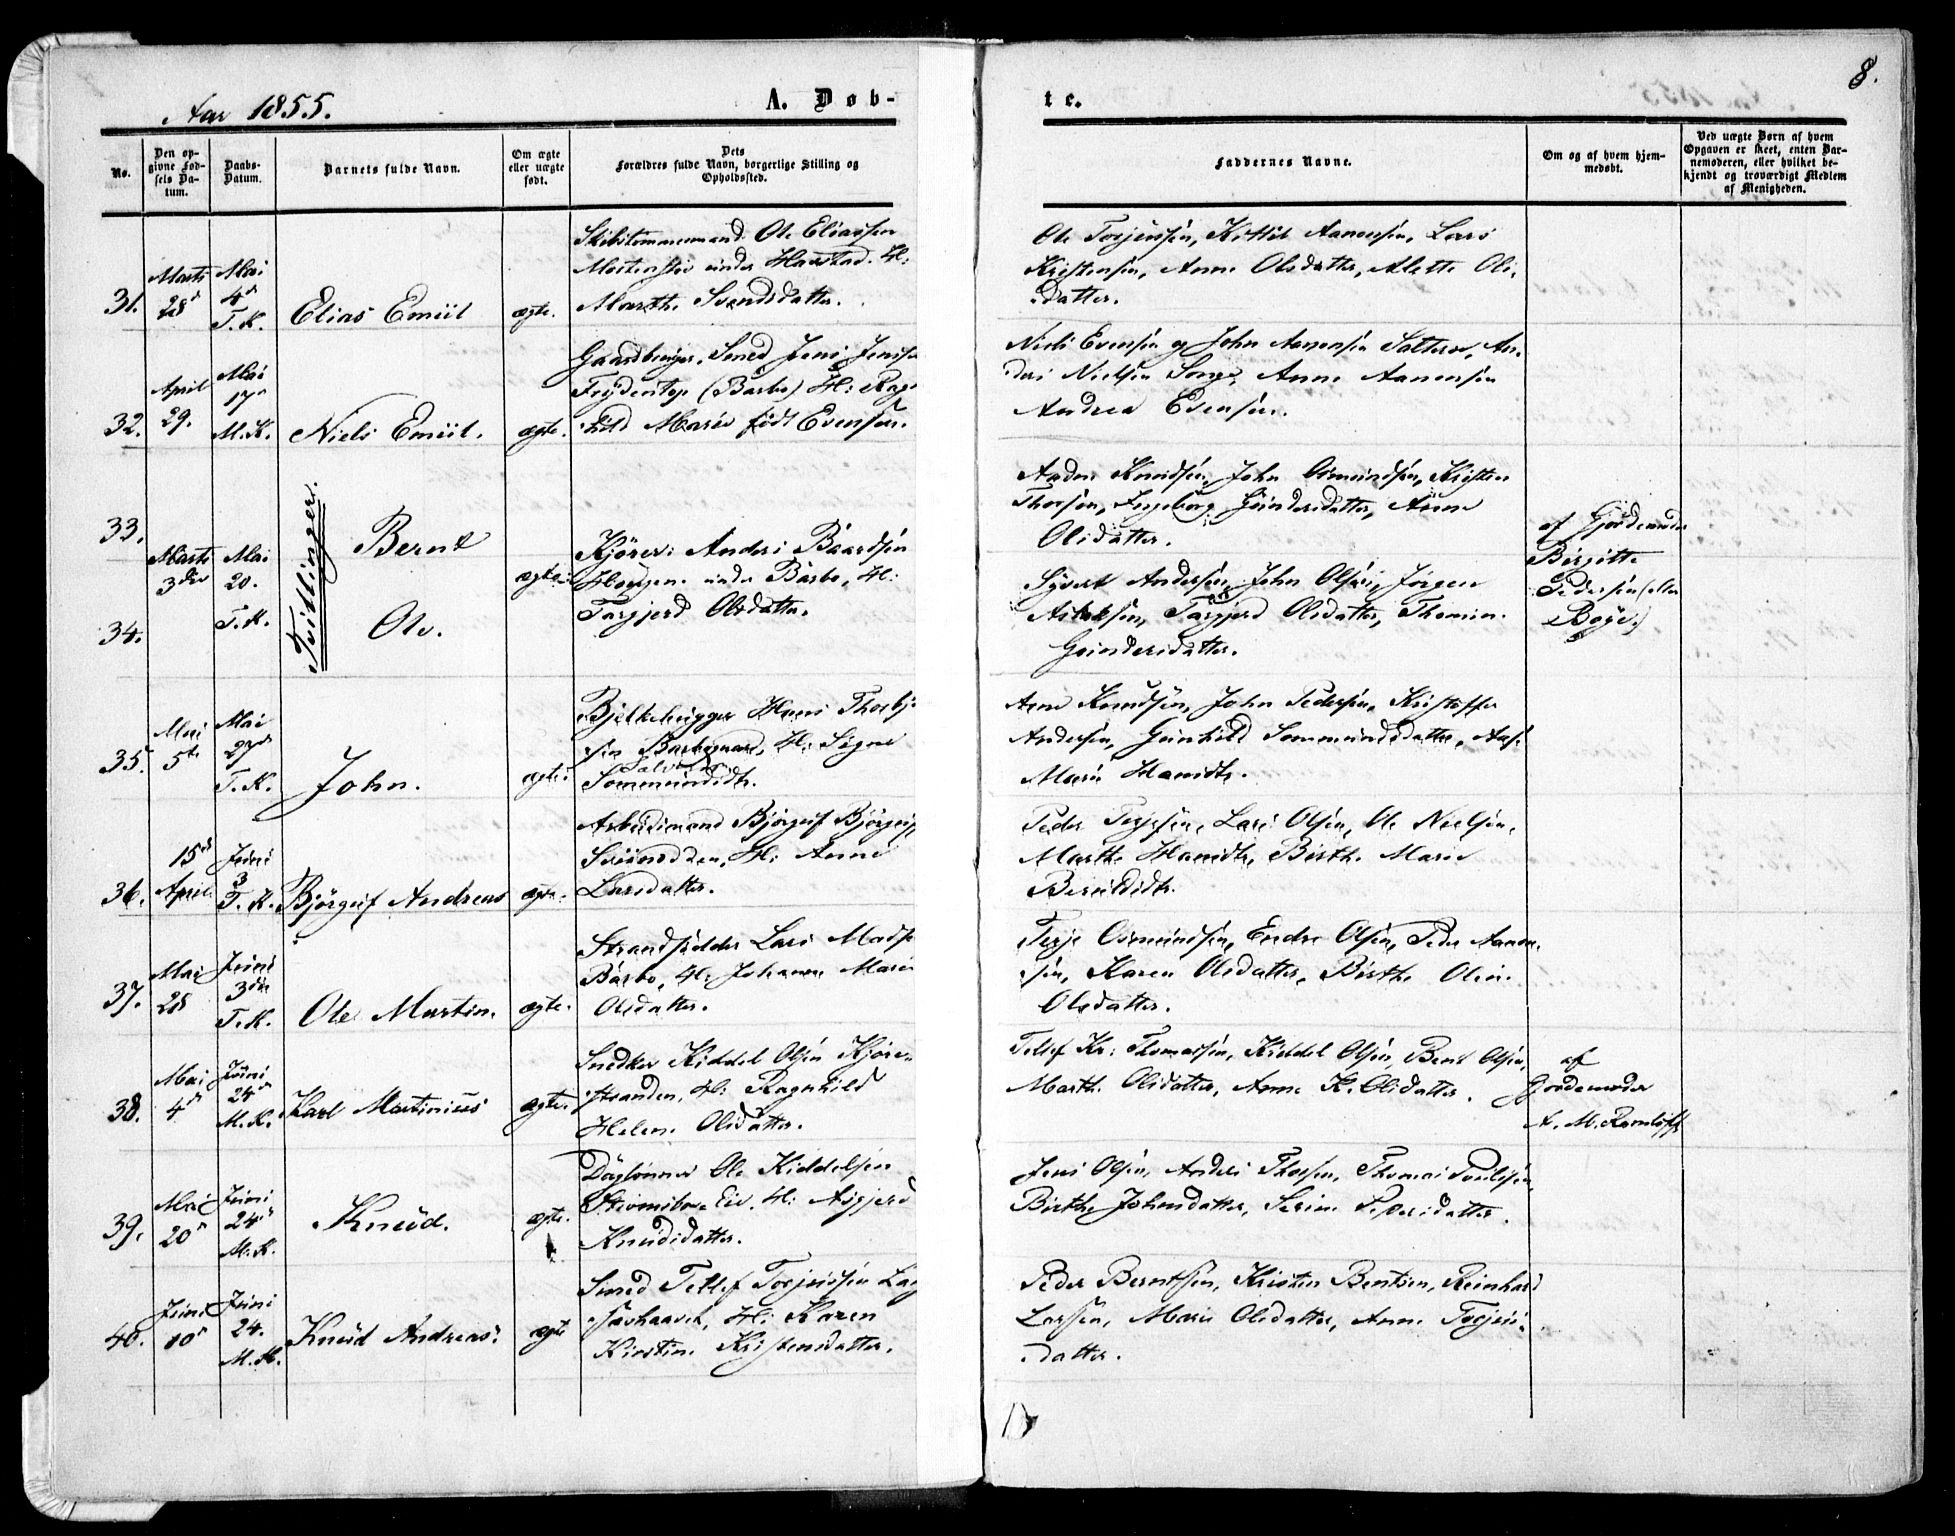 Aar 1855.
A. Døb-
te.
8.
No.
Den op-
givne Fød-
sels Da-
tum.
Daabs-
Datum.
Barnets fulde Navn.
Om ægte
eller uægte
født.
Dets
Forældres fulde Navn, borgerlige Stilling og
Opholdssted.
Faddernes Navne.
Om og af hvem hjem-
medøbt.
Ved uægte Børn af hvem
Opgaven er skeet, enten Bar-
nemoderen, eller hvilket be-
kjendt og troværdigt Medlem
af Menigheden.
31.
Marts
28de
Mai
4de
T. K.
Elias Emiil
ægte.
Skibstømmermand Ole Eliassen
under Harstad. H:
Marthe Svendsdatter.
Ole Torjensen, Kittil Aanensen, Lars
Kristensen, Anne Olsdatter, Alette Ols-
datter.
32.
April
29.
Mai
17de
M. K.
Niels Emiil.
ægte.
Smed Jens Jens
(Barbo) H: Rag
hild Marie født Evensen.
Niels Evensen og John Aanensen An-
ders Nielsen Anne Aanensen
Andrea Evensen.
33.
34.
Marts
3die
Mai
20.
T. K.
Tvillinger.
Bernt
Ole.
ægte.
Kjører: Anders Baardsen
under Barbo, H:
Targjerd Olsdatter.
Anders Knudsen, John Osmundsen, Kristen
Thorsen, Ingeborg Gundersdatter, Anne
Olsdatter.
Syvert Andersen, John Olsen, Jørgen
Aslaksen, Targjerd Olsdatter, Thomine
Gundersdatter.
af Gjordemoder
Birgitte
Pedersen (eller
Bøye.)
35.
Mai
5te
Mai
27de
T. K.
John.
ægte:
Bjelkehugger Hans Thorbj
sen H: Signe
Sommundsdtr.
Arne Knudsen, John Pedersen, Kristoffer
Andersen, Gunhild Sommundsdatter, Ans:
Marie Hansdtr.
36.
15de
April
Juni
3
T. K.
Bjørguf Andreas
ægte.
Arbeidsmand Bjørguf
H: Anne
Larsdatter.
Peder Terjesen, Lars Olsen, Ole Nielsen,
Marthe Hansdtr, Birthe Marie
37.
Mai
28
Juni
3die
T. K.
Ole Martin.
ægte.
Strandsidder Lars Mads
Barbo, H: Johanne Marie
Olsdatter.
Terje Osmundsen, Endre Olsen, Peder Aanen-
sen, Karen Olsdatter, Birthe Oline
Olsdatter.
38.
Mai
4de
Juni
24de
M. K.
Karl Martinius
ægte.
Snedker Kiddel Olsen
H: Ragnhild
Helene Olsdatter.
Tellef Kr: Thomassen, Kiddel Olsen, Bent Olsen,
Marthe Olsdatter, Anne K. Olsdatter.
af
Gjordemoder
A. M. Ramløff
39.
Mai
20de
Juni
24de
M. K.
Knud.
ægte.
Daglønner Ole Kiddelsen
H: Asgjerd
Knudsdatter.
Jens Olsen, Anders Thorsen, Thomas Poulsen,
Birthe Johnsdatter, Serine Pedersdatter.
40.
Juni
10de
Juni
24.
M. K.
Knud Andreas.
ægte
Smed Tellef Torjussen
H: Karen
Kirstine Kristensdatter.
Peder Berntsen, Kristen Bentsen, Reinhard
Larsen, Marie Olsdatter, Anne Torjus-
datter.